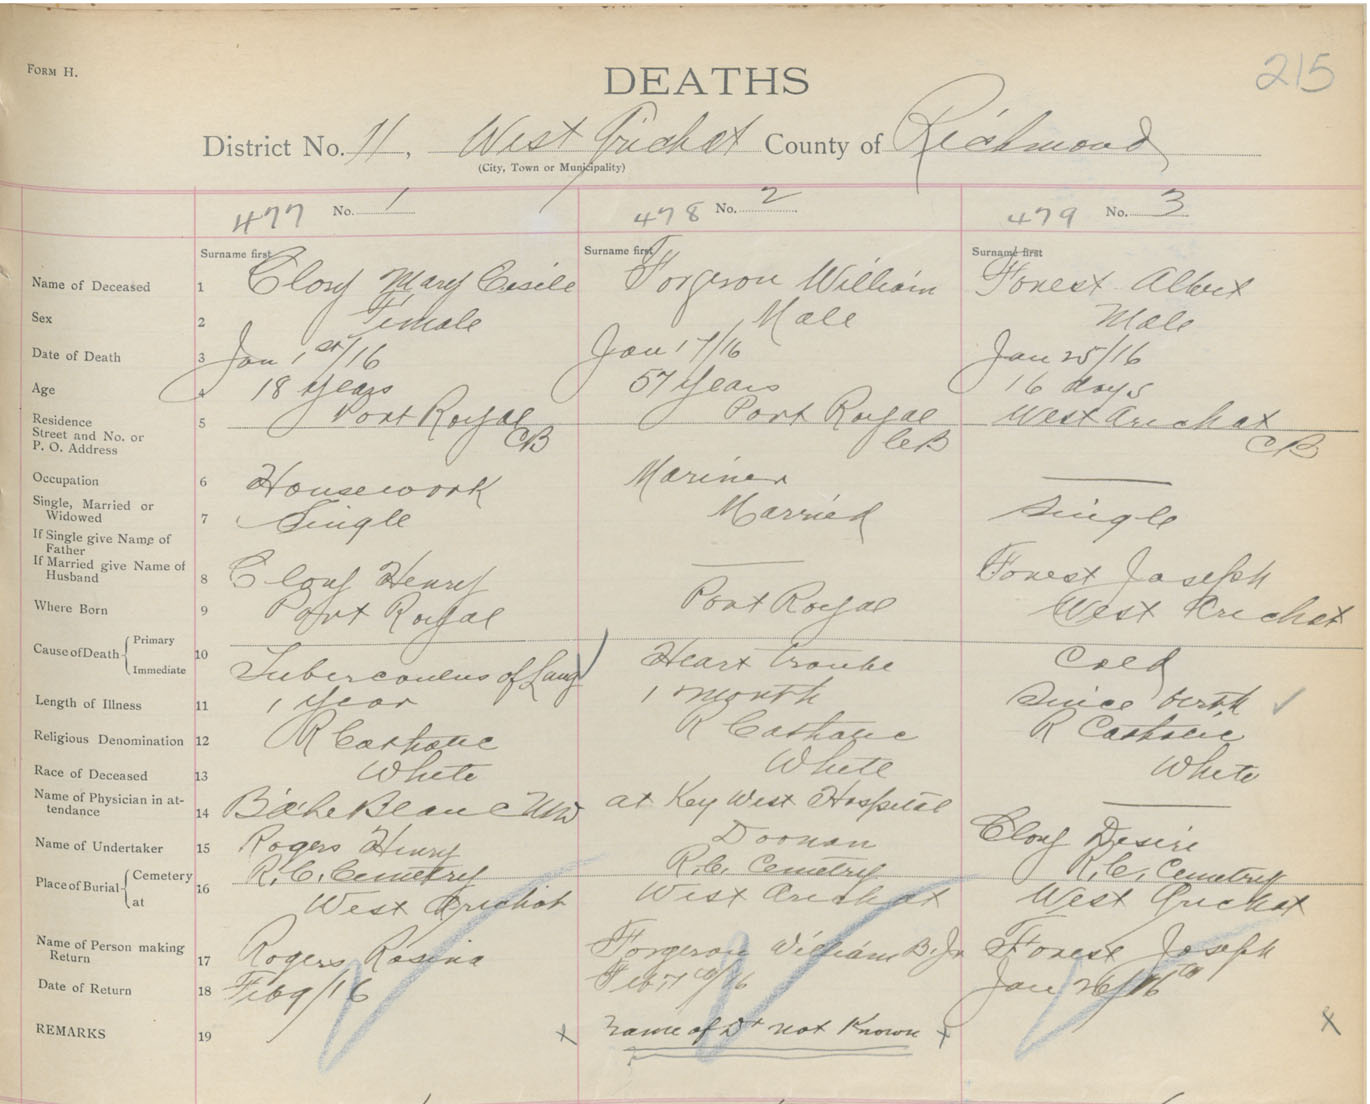 FORM H.
DEATHS
215
District No. 11, West Arichat County of Richmond
(City, Town or Municipality)
477 No. 1
478 No. 2
479 No. 3
Surname first
Surname first
Surname first
Name of Deceased 1 Clory Mary Cisile
Forgeron William
Forest Albert
Sex 2 Female
Male
Male
Date of Death 3 Jan 1st/16
Jan 17/16
Jan 25/16
Age 4 18 years
57 years
16 days
Residence
Street and No. or
P. O. Address
5 Port Royal
CB
Port Royal
CB
West Arichat
CB
Occupation 6 Housework
Mariner
Single, Married or
Widowed
7 Single
Married
Single
If Single give Name of
Father
If Married give Name of
Husband
8 Clory Henry
Forest Joseph
Where Born 9 Port Royal
Port Royal
West Arichat
Cause of Death Primary
Immediate
10 Tuberculus of Lung
Heart trouble
Cold
Length of Illness 11 1 Year
1 month
Since birth
Religious Denomination 12 R Catholic
R Catholic
R Catholic
Race of Deceased 13 White
White
White
Name of Physician in at-
tendance
14
at Key West Hospital
Name of Undertaker 15 Rogers Henry
Doonan
Clory Desire
Place of Burial Cemetery
at
16 R.C. Cemetry
West Arichat
R.C. Cemetry
West Arichat
R.C. Cemetry
West Arichat
Name of Person making
Return
17 Rogers Rosina
Forgeron William B. Jr
Forest Joseph
Date of Return 18 Feb 9/16
Feb 7th/16
Jan 26/16th
REMARKS 19 x
Name of Dr not Known x
x